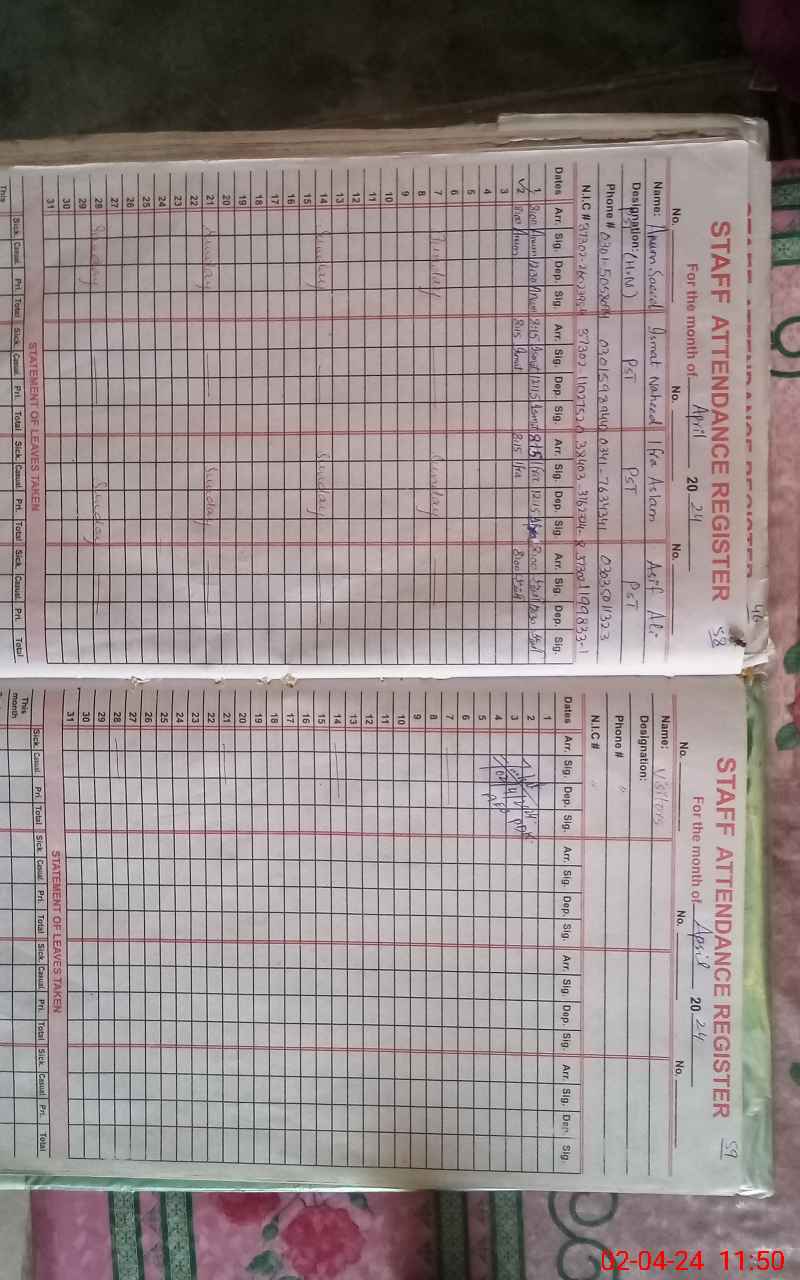 STAFF ATTENDANCE REGISTER
46
STAFF ATTENDANCE REGISTER 58
For the month of April 20 24
No. No. No.
Name: Anum Saeed Ismat Naheed Ifra Aslam Asif Ali
Designation: (H.M) PST PST PST
Phone # 0301-
N.I.C #
Dates Arr. Sig. Dep. Sig. Arr. Sig. Dep. Sig. Arr. Sig. Dep. Sig. Arr. Sig. Dep. Sig.
1 8:00 Anum 12:30 Anum 8:15 Ismat 12:15 Ismat 8:15 Ifra 12:15 Ifra 8:00 12:30
2 8:00 Anum 8:15 Ismat 8:15 Ifra 8:00
3
4
5
6
7 Sunday Sunday
8
9
10
11
12
13
14 Sunday Sunday
15
16
17
18
19
20
21 Sunday Sunday
22
23
24
25
26
27
28 Sunday Sunday
29
30
31
STATEMENT OF LEAVES TAKEN
Sick. Casual. Pri. Total Sick. Casual. Pri. Total Sick. Casual. Pri. Total Sick. Casual. Pri. Total
This
STAFF ATTENDANCE REGISTER 59
For the month of April 20 24
No. No. No.
Name: Visitors
Designation:
Phone # "
N.I.C # "
Dates Arr. Sig. Dep. Sig. Arr. Sig. Dep. Sig. Arr. Sig. Dep. Sig. Arr. Sig. Dep. Sig.
1
2
3
4
5
6
7
8
9
10
11
12
13
14
15
16
17
18
19
20
21
22
23
24
25
26
27
28
29
30
31
STATEMENT OF LEAVES TAKEN
Sick. Casual. Pri. Total Sick. Casual. Pri. Total Sick. Casual. Pri. Total Sick. Casual. Pri. Total
This month
02-04-24 11:50